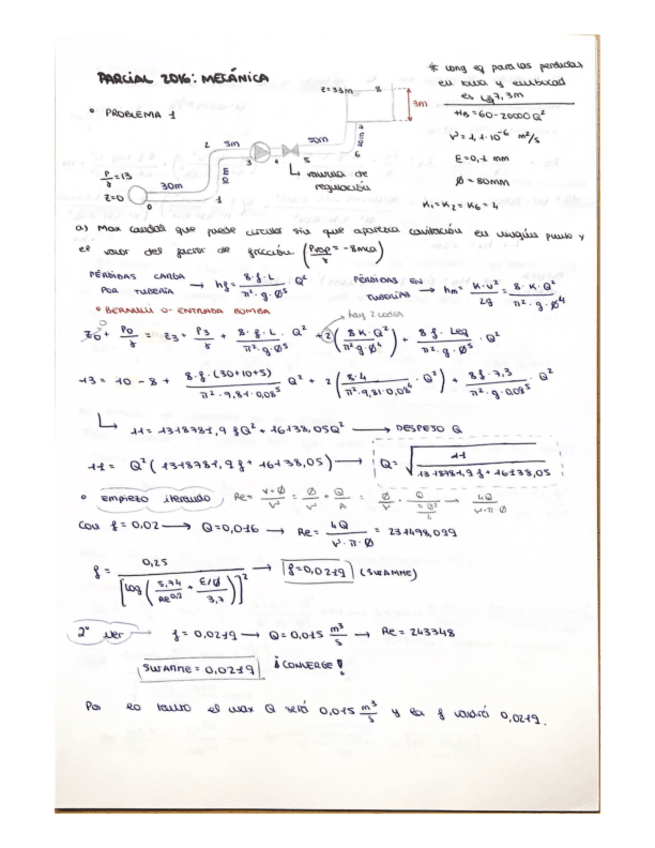 PARCIAL 2016: MECÁNICA
* long eq para las perdidas
en toma y embocad
es Lq 7,3m
HB = 60 - 20000 Q²
ν = 1,1·10⁻⁶ m²/s
E = 0,1 mm
Ø = 80mm
K₁ = K₂ = K₆ = 4
• PROBLEMA 1
z=33m 8
3m
7
10m
6
50m
5
4
3
5m
2
10m
1
30m
0
P/γ = 13
z=0
valvula de
regulación
a) Max caudal que puede circular sin que aparezca cavitación en ningún punto y
el valor del factor de fricción (Pvap/γ = -8mca)
PÉRDIDAS CARGA
POR TUBERÍA → hf = 8·f·L / π²·g·Ø⁵ Q²
PÉRDIDAS EN
TUBERÍAS → hm = K·v² / 2g = 8·K·Q² / π²·g·Ø⁴
• BERNULLI 0 - ENTRADA BOMBA
hay 2 codos
z₀ + P₀/γ = z₃ + P₃/γ + 8·f·L / π²·g·Ø⁵ · Q² + 2 (8K·Q² / π²·g·Ø⁴) + 8f·Leq / π²·g·Ø⁵ · Q²
13 = 10 - 8 + 8·f·(30+10+5) / π²·9,81·0,08⁵ Q² + 2 (8·4 / π²·9,81·0,08⁴ · Q²) + 8f·7,3 / π²·g·0,08⁵ · Q²
↳ 11 = 1318781,9 f Q² + 16138,05Q² → DESPEJO Q
11 = Q² (1318781,9 f + 16138,05) → Q = √(11 / 1318781,9 f + 16138,05)
• empiezo iterando, Re = v·Ø / ν = Ø/ν · Q/A = Ø/ν · Q / (πØ²/4) → 4Q / ν·π·Ø
Con f = 0,02 → Q = 0,016 → Re = 4Q / ν·π·Ø = 231498,099
f = 0,25 / [log (5,74 / Re⁰·⁹ + E/Ø / 3,7)]² → f = 0,0219 (SWAMME)
2ª iter → f = 0,0219 → Q = 0,015 m³/s → Re = 243348
SWAMME = 0,0219 ¡CONVERGE!
Por lo tanto el max Q será 0,015 m³/s y la f valdrá 0,0219.